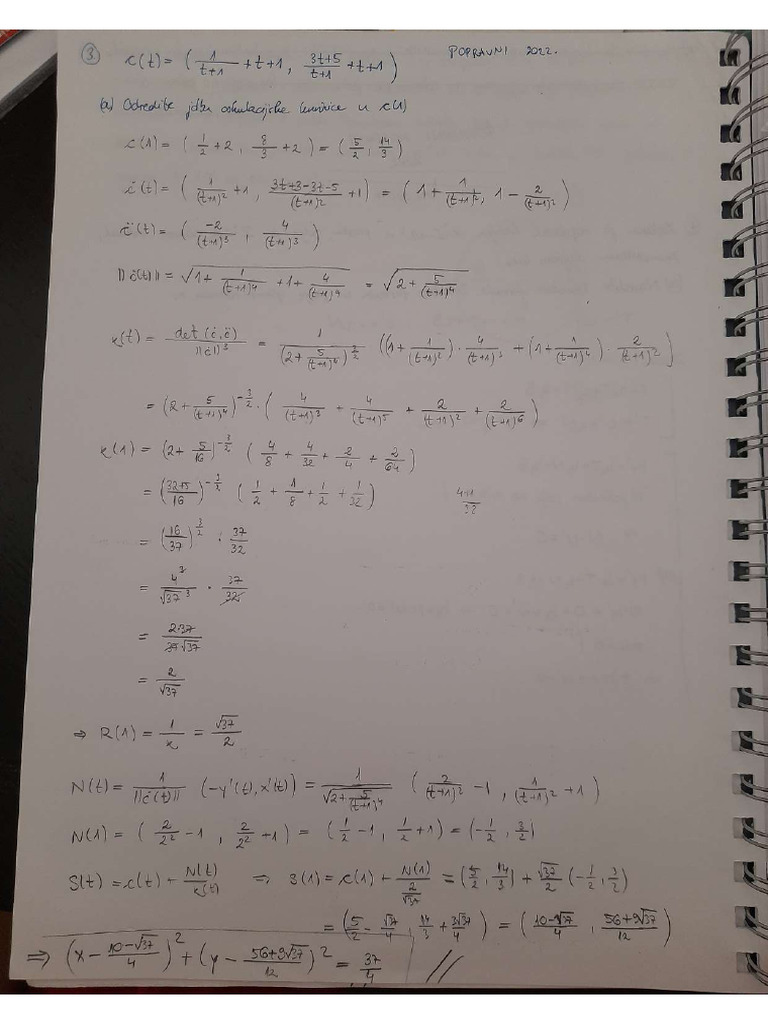 ③ c(t) = ( 1/(t+1) + t+1 , (3t+5)/(t+1) + t+1 ) POPRAVNI 2022.
(a) Odredite jdbu oskulacijske kružnice u c(1)
c(1) = ( 1/2 + 2 , 8/3 + 2 ) = ( 5/2 , 14/3 )
ċ(t) = ( 1/(t+1)² + 1 , (3t+3-3t-5)/(t+1)² + 1 ) = ( 1 + 1/(t+1)² , 1 - 2/(t+1)² )
c̈(t) = ( -2/(t+1)³ , 4/(t+1)³ )
||ċ(t)|| = √(1 + 1/(t+1)⁴ + 1 + 4/(t+1)⁴) = √(2 + 5/(t+1)⁴)
κ(t) = det(ċ,c̈)/||ċ||³ = 1/(2 + 5/(t+1)⁴)^(3/2) ( (1 + 1/(t+1)²) · 4/(t+1)³ + (1 + 1/(t+1)⁴) · 2/(t+1)² )
= (2 + 5/(t+1)⁴)^(-3/2) · ( 4/(t+1)³ + 4/(t+1)⁵ + 2/(t+1)² + 2/(t+1)⁶ )
κ(1) = (2 + 5/16)^(-3/2) ( 4/8 + 4/32 + 2/4 + 2/64 )
= ((32+5)/16)^(-3/2) ( 1/2 + 1/8 + 1/2 + 1/32 ) 4+1/32
= (16/37)^(3/2) · 37/32
= 4³/√37³ · 37/32
= 2·37/37√37
= 2/√37
⇒ R(1) = 1/κ = √37/2
N(t) = 1/||ċ(t)|| (-y'(t), x'(t)) = 1/√(2 + 5/(t+1)⁴) ( 2/(t+1)² - 1 , 1/(t+1)² + 1 )
N(1) = ( 2/2² - 1 , 2/2² + 1 ) = ( 1/2 - 1 , 1/2 + 1 ) = ( -1/2 , 3/2 )
S(t) = c(t) + N(t)/κ(t) ⇒ S(1) = c(1) + N(1)/(2/√37) = ( 5/2 , 14/3 ) + √37/2 ( -1/2 , 3/2 )
= ( 5/2 - √37/4 , 14/3 + 3√37/4 ) = ( (10-√37)/4 , (56+9√37)/12 )
⇒ ( x - (10-√37)/4 )² + ( y - (56+9√37)/12 )² = 37/4 //